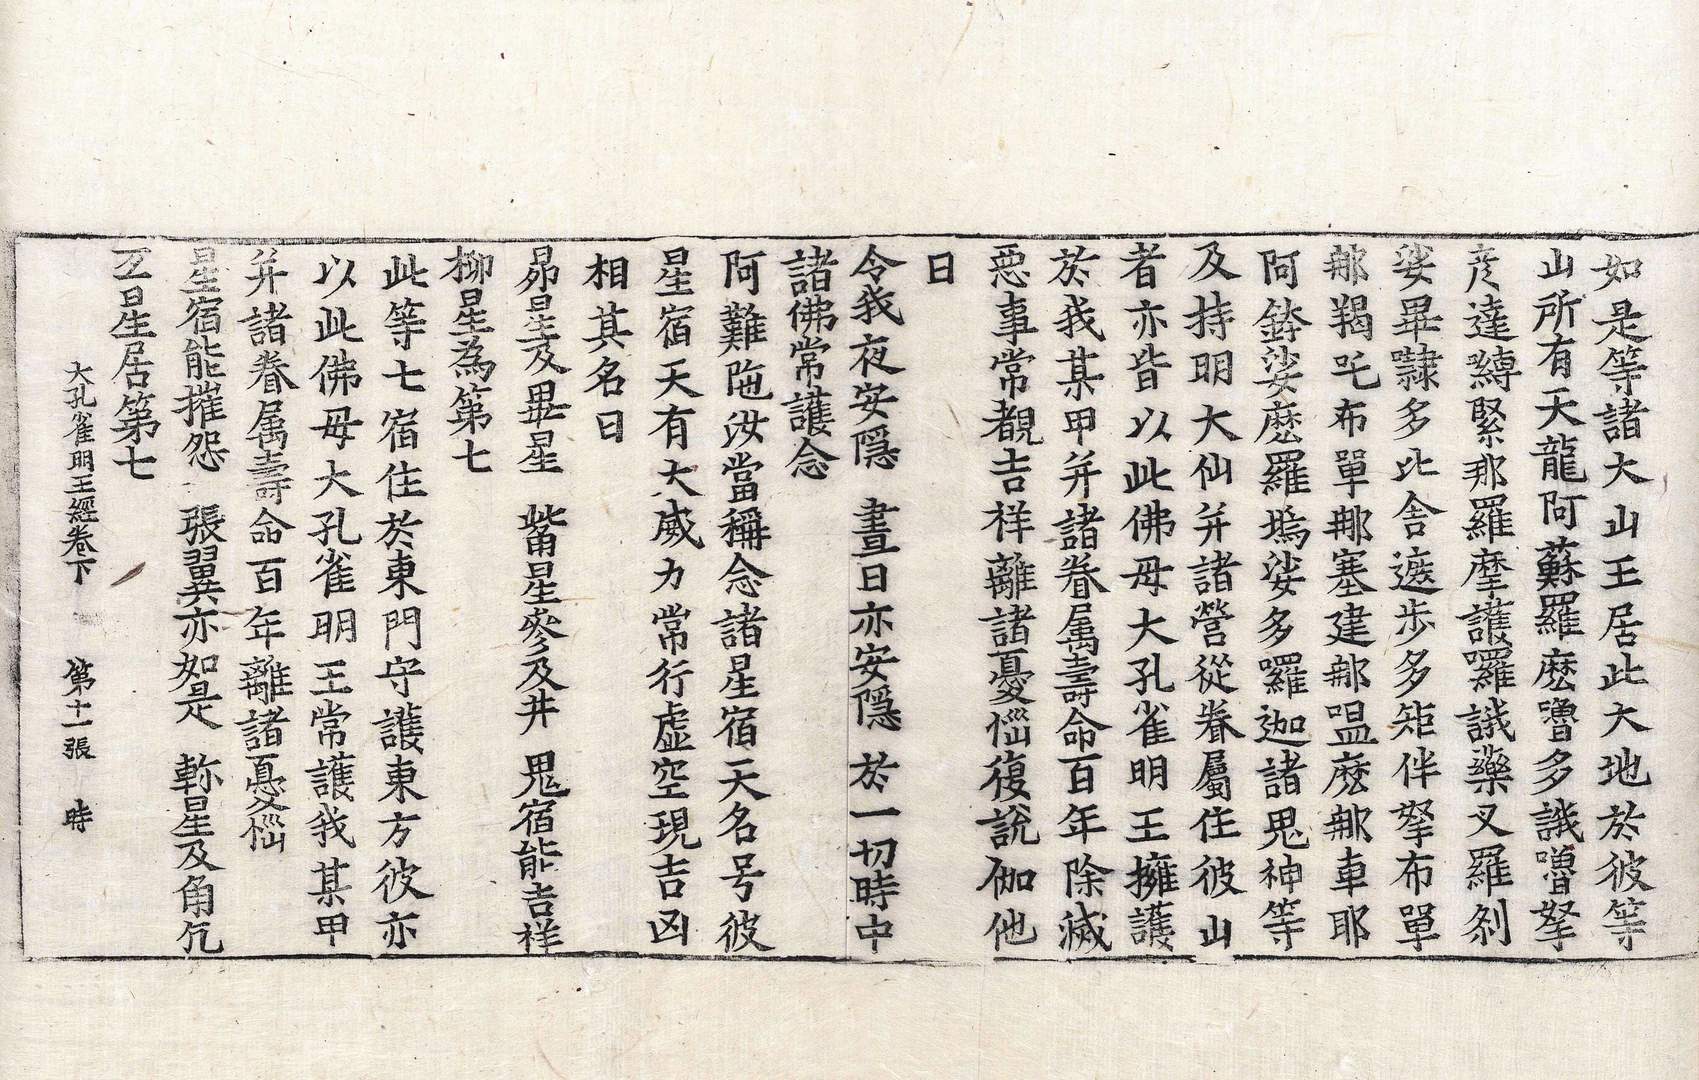 如是等諸大山王居此大地於彼等
山所有天龍阿蘇羅麽嚕多誐嚕拏
彦達縛緊那羅摩護囉誐藥叉羅刹
娑畢隸多比舍遮步多矩伴拏布單
那羯吒布單那塞建那嗢麽那車耶
阿鉢娑麽羅塢娑多囉迦諸鬼神等
及持明大仙并諸營從眷屬住彼山
者亦皆以此佛母大孔雀明王擁護
於我某甲并諸眷属壽命百年除滅
惡事常覩吉祥離諸憂惱復說伽他
曰
令我夜安隱 晝日亦安隱 於一切時中
諸佛常護念
阿難陁汝當稱念諸星宿天名号彼
星宿天有大威力常行虛空現吉凶
相其名曰
昴星及畢星 觜星參及井 鬼宿能吉祥
柳星為第七
此等七宿住於東門守護東方彼亦
以此佛母大孔雀明王常護我某甲
并諸眷属壽命百年離諸憂惱
星宿能摧怨 張翼亦如是 軫星及角亢
互星居第七
大孔雀明王經卷下 第十一張 時